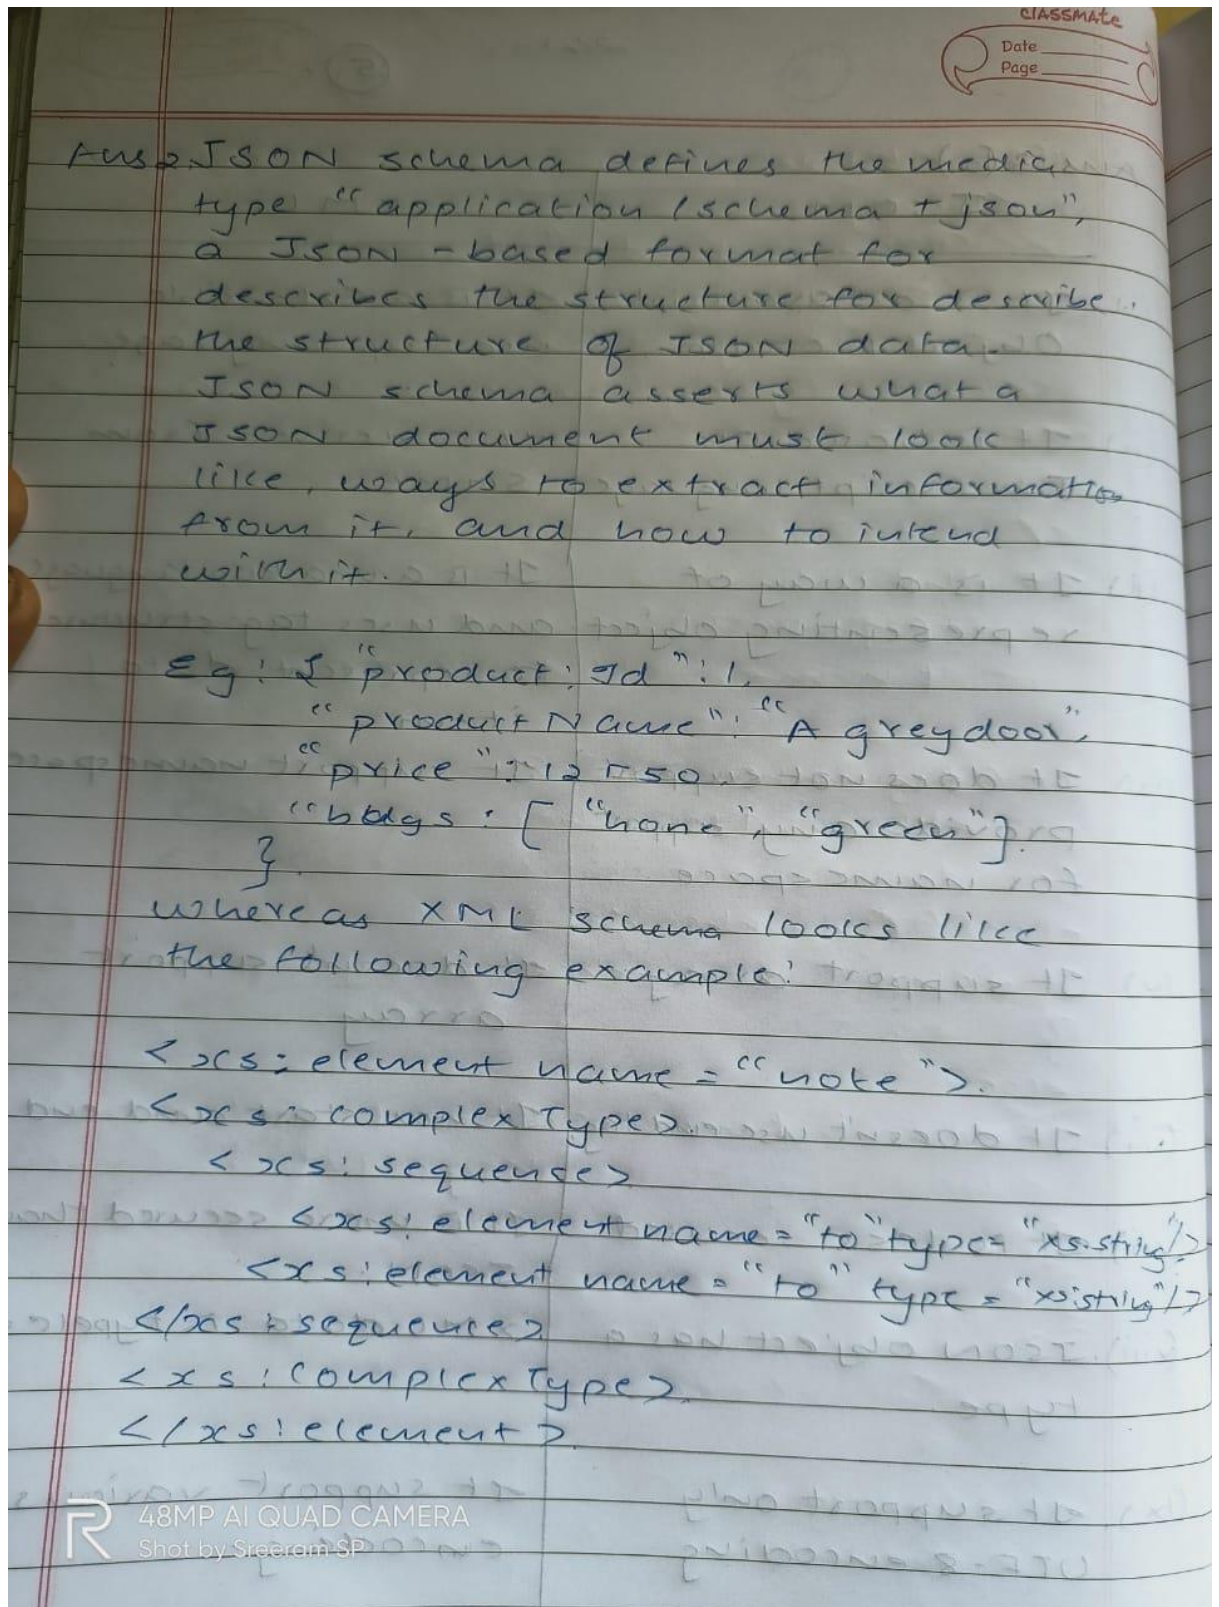 classmate
Date
Page
Ans 2 JSON schema defines the media
type "application /schema + json",
a JSON - based format for
describes the structure for describe
the structure of JSON data.
JSON schema asserts what a
JSON document must look
like, ways to extract information
from it, and how to intend
with it.
Eg: { "product: Id" : 1,
"product Name" : "A grey door",
"price" : 12 50
" : [ "hone", "green"].
}
whereas XML schema looks like
the following example:
<xs: element name = "note">.
<xs: complex Type>.
<xs: sequence>
<xs: element name = "to" type= "xs.string"/>
<xs: element name = "to" type = "xs:string"/>
</xs : sequence>
<xs: complex Type>.
</xs: element>.
48MP AI QUAD CAMERA
Shot by Sreeram SP